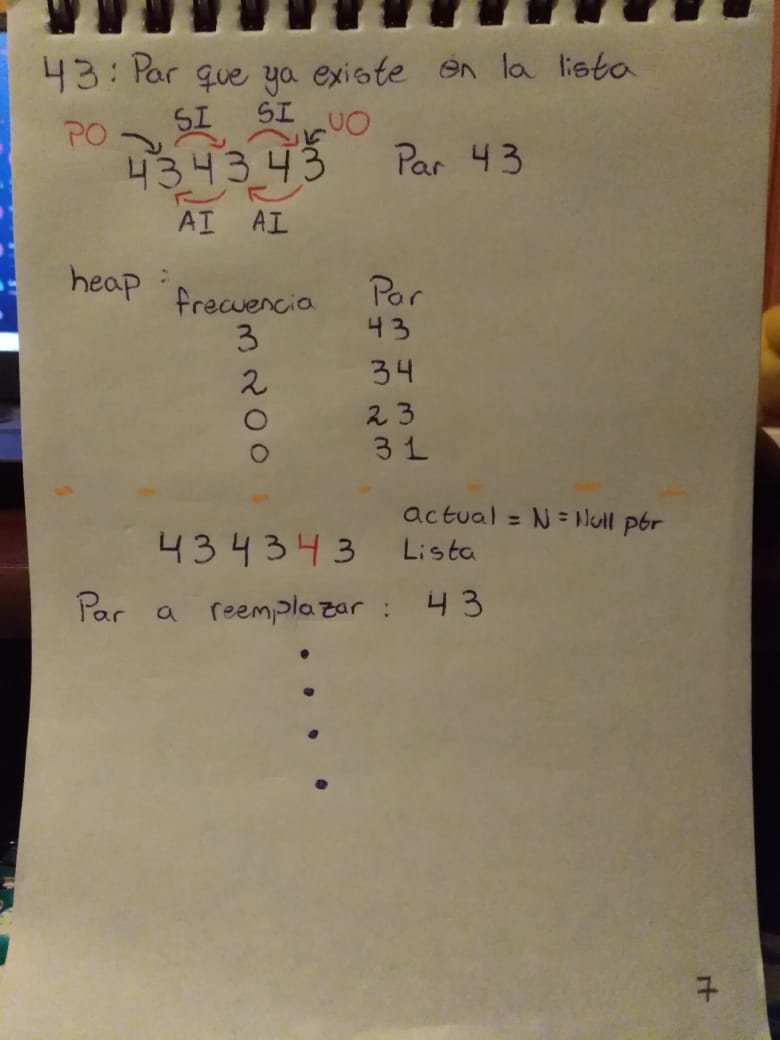 43: Par que ya existe en la lista
SI SI
PO UO
43 43 43 Par 43
AI AI
heap :
frecuencia Par
3 43
2 34
0 23
0 31
4 3 4 3 4 3 actual = N = Null ptr
Lista
Par a reemplazar : 43
7